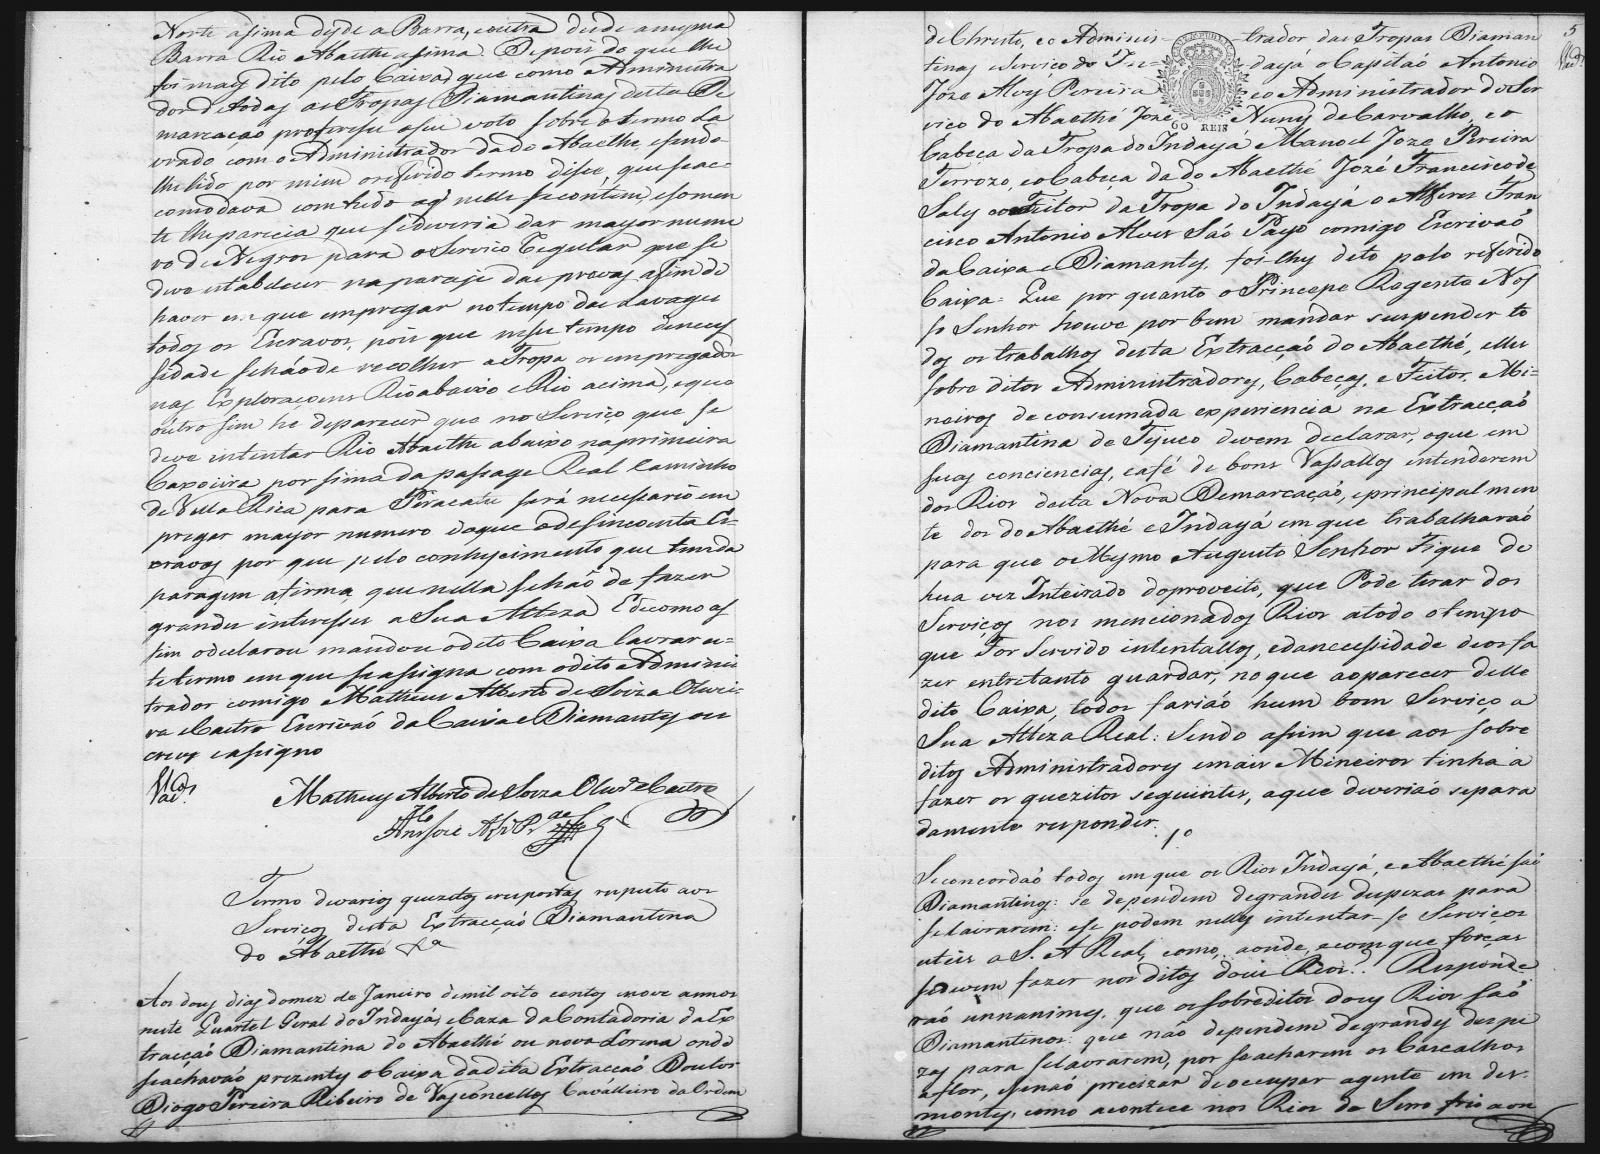 Norte asima desde a Barra, e outra desde a mesma
Barra Rio Abaethe asima. Depois do que lhe
foi mais dito pelo Caixa, que como Administra
dor de todas as Tropas Diamantinas desta De
marcação proferisse o seu voto sobre o termo La
vrado com o Administrador dado Abaethe, e sendo
lhe lido por mim o referido termo disse, que se ac=
comodava com tudo aq.' nelle se contem, e somen
te lhe parecia que se deveria dar mayor nume
ro de Negros para o Servico Regular que se
deve estabelecer na paraje das provas, a fim de
haver em que empregar no tempo das Lavages
todos os Escravos, pois que nesse tempo de neces
sidade se hão de recolher a Tropa os empregados
nas Exploraçoens Rio abaixo e Rio acima, e que
outro sim he de parecer que no Serviço, que se
deve intentar Rio Abaethe abaixo na primeira
Caxoeira por sima da passage Real Caminho
de Villa Rica para Piracatu será necessario em
pregar mayor numero do que o de sincoenta Es=
cravos por que pelo conhecimento que tem da
paragem afirma, que nella se hão de fazer
grandes interesses a Sua Alteza E de como as
sim o declarou mandou o dito Caixa lavrar es=
te termo em que se assigna com o dito Adminis
trador comigo Matheus Alberto de Soiza Olivei=
ra e Castro Escrivão da Caixa e Diamantes o es
crevy e assigno
Vas.cos
Matheus Alberto de Souza Oliv.ra e Castro
Ant.o José Alz' P.ra
Termo de varios quezitos e respostas respeito aos
Serviços desta Extracção Diamantina
do Abaethé &.a
Aos dous dias do mez de Janeiro de mil oito centos e nove annos
neste Quartel Geral do Indayá, e Caza da Contadoria da Ex
tracção Diamantina do Abaethé ou nova Lorena onde
se achavão prezentes o Caixa da dita Extracção Doutor
Diogo Pereira Ribeiro de Vasconcellos Cavalleiro da Ordem
5
Vas.cos
60 REIS
de Christo, e o Adminis= trador das Tropas Diaman
tinas e Serviço do In= dayá o Capitão Antonio
Joze Alves Pereira e o Administrador do Ser
vico do Abaethé Joze Nunes de Carvalho, e o
Cabeça da Tropa do Indayá Manoel Joze Pereira
Terrozo, e o Cabeça da do Abaethé Jozé Francisco de
Sales e o Feitor da Tropa do Indayá o Alferes Fran
cisco Antonio Alves São Payo comigo Escrivão
da Caixa e Diamantes. foi-lhes dito pelo referido
Caixa = Que por quanto o Principe Regente Nos
so Senhor houve por bem mandar suspender to
dos os trabalhos desta Extracção do Abaethé, elles
sobre ditos Administradores, Cabeças, e Feitor, Mi=
neiros de consumada experiencia na Extracção
Diamantina de Tejuco devem declarar, o que em
suas conciencias, e afé de bons Vassallos entenderem
dos Rios desta Nova Demarcação, e principalmen
te dos do Abaethé e Indayá em que trabalharão
para que o Mesmo Augusto Senhor Fique de
hua vez Inteirado do proveito, que Pode tirar dos
Serviços nos mencionados Rios a todo o tempo
que For Servido intentallos, e da necessidade de os fa
zer entretanto guardar, no que ao parecer delle
dito Caixa, todos farião hum bom Serviço a
Sua Alteza Real: Sendo assim que aos sobre
ditos Administradores e mais Mineiros tinha a
fazer os quezitos seguintes, a que deverião separa
damente responder.
1.o
Se concordão todos em que os Rios Indayá, e Abaethé são
Diamantinos: se dependem de grandes despezas para
se lavrarem: e se podem nelles intentar-se Serviços
uteis a S. A. Real, como, aonde, e com que forças
se devem fazer nos ditos dous Rios?. Responde
rão unnanimes, que os sobreditos dous Rios são
Diamantinos: que não dependem de grandes despe
zas para se lavrarem, por se acharem os Cascalhos
a flor, e senão precizar de occupar a gente em des=
montes, como acontece nos Rios do Serro frio aon